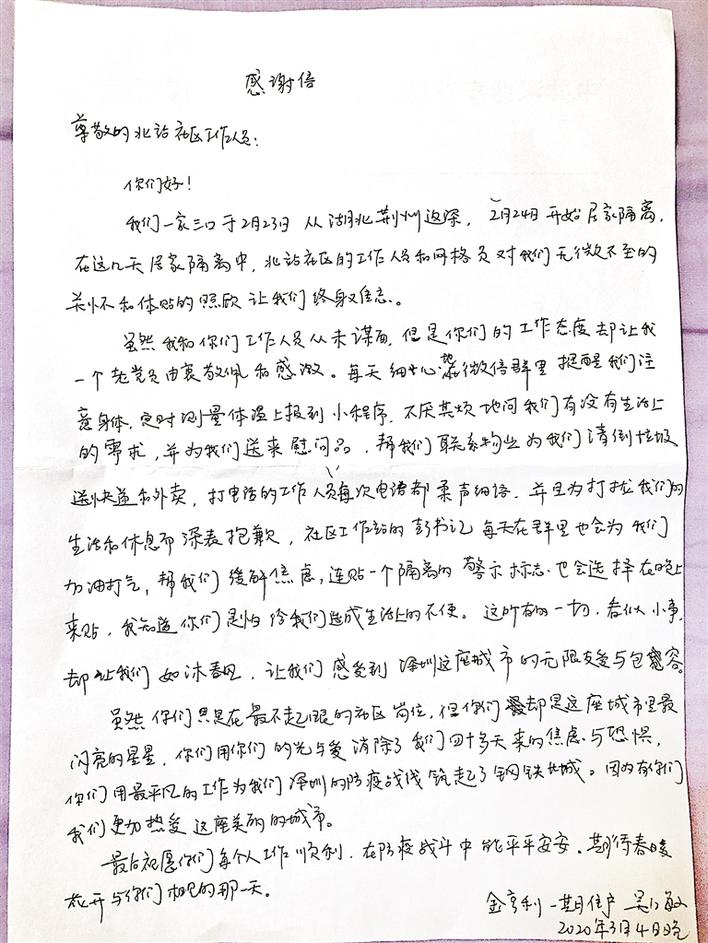 感谢信
尊敬的北站社区工作人员：
你们好！
我们一家三口于2月23日从湖北荆州返深，2月24日开始居家隔离，
在这几天居家隔离中，北站社区的工作人员和网格员对我们无微不至的
关怀和体贴的照顾让我们终身难忘。
虽然我和你们工作人员从未谋面，但是你们的工作态度却让我
一个老党员由衷敬佩和感激。每天细心地在微信群里提醒我们注
意身体，定时测量体温上报到小程序，不厌其烦地问我们有没有生活上
的需求，并为我们送来慰问品，帮我们联系物业为我们清倒垃圾
送快递和外卖，打电话的工作人员每次电话都柔声细语，并且为打扰我们的
生活和休息而深表抱歉，社区工作站的彭书记每天在群里也会为我们
加油打气，帮我们缓解焦虑，连贴一个隔离的警示标志也会选择在晚上
来贴，我知道你们是怕给我们造成生活上的不便。这所有的一切，看似小事，
却让我们如沐春风，让我们感受到深圳这座城市的无限友爱与包容。
虽然你们只是在最不起眼的社区岗位，但你们却是这座城市里最
闪亮的星星，你们用你们的光与爱消除了我们四十多天来的焦虑与恐惧，
你们用最平凡的工作为我们深圳的防疫战线筑起了钢铁长城。因为有你们
我们更加热爱这座美丽的城市。
最后祝愿你们每个人工作顺利，在防疫战斗中能平平安安。期待春暖
花开与你们相见的那一天。
金亨利一期住户 吴 敏
2020年3月4日晚